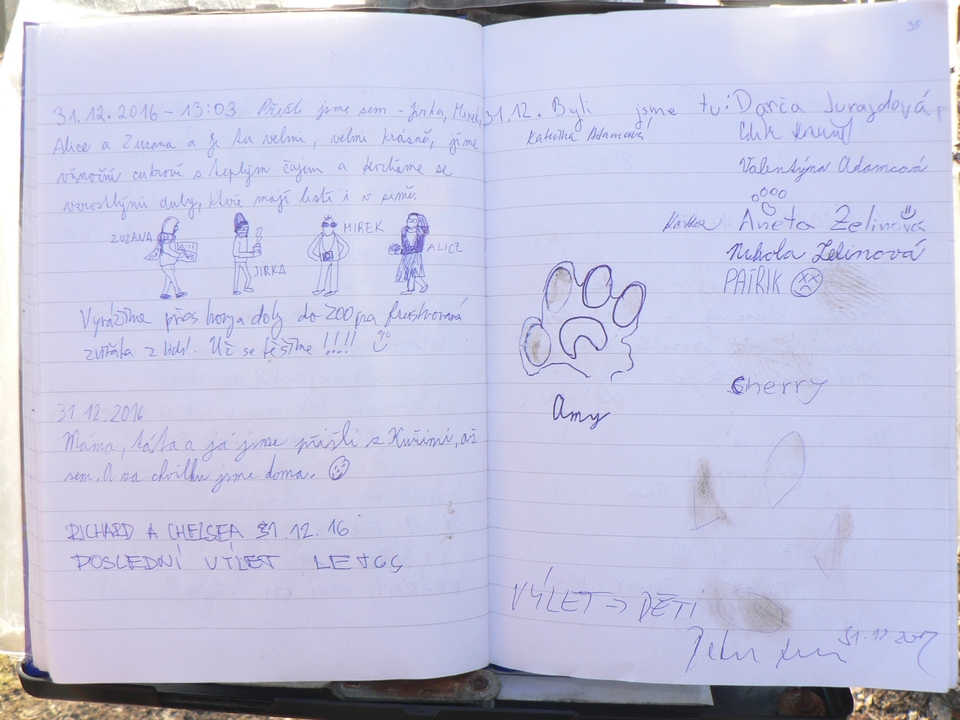 31.12.2016 - 13:03 Přišli jsme sem - Jirka, Mirek,
Alice a Zuzana a je tu velmi, velmi krásně, jíme
vánoční cukroví s teplým čajem a kocháme se
vzrostlými duby, které mají listí i v zimě.
ZUZANA
JIRKA
MIREK
ALICE
Vyrážíme přes hory a doly do ZOO pro frustrovaná
zvířata z lidí. Už se těšíme !!!!
31.12.2016
Máma, táta a já jsme přišli z Kuřimi, až
sem. A za chvilku jsme doma.
RICHARD A CHELSEA 31.12.16
POSLEDNÍ VÝLET LETOS
35
31.12. Byli jsme tu: Darča Jurajdová,
Katuška Adamcová
Valentýna Adamcová
Aneta Zelinová
Nikola Zelinová
PATRIK
Amy
Cherry
VÝLET => DĚTI
31.12